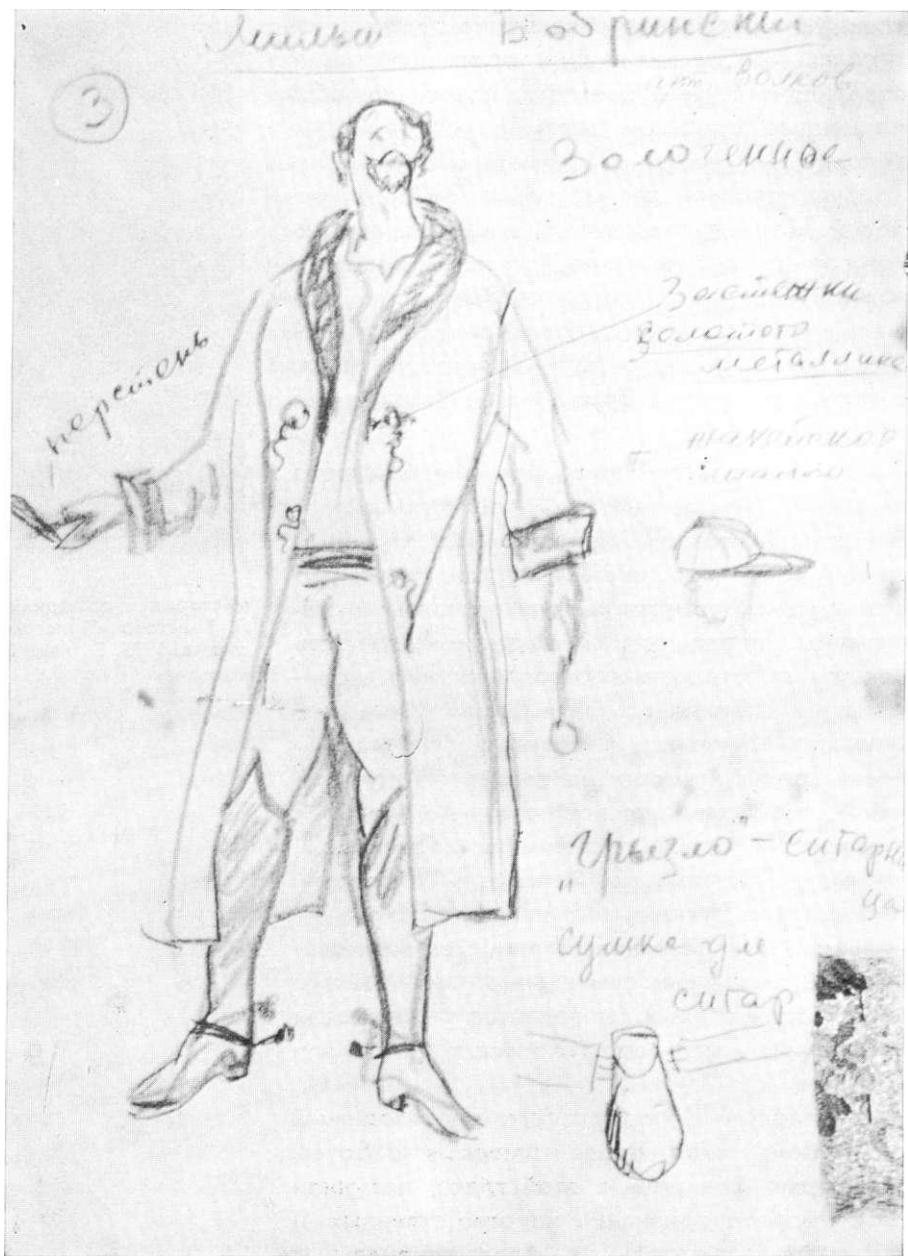 Бобринский
арт. Волков
3
Золоченное
Застежки
золотого
металлика
перстень
жокейская
шапка
"Грызло" – сигарн
сумке для
сигар